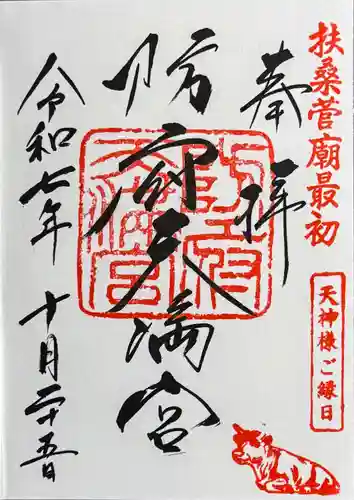 扶桑菅廟最初
天神様ご縁日
奉拝
防府天満宮
防府天満宮
令和七年十月二十五日